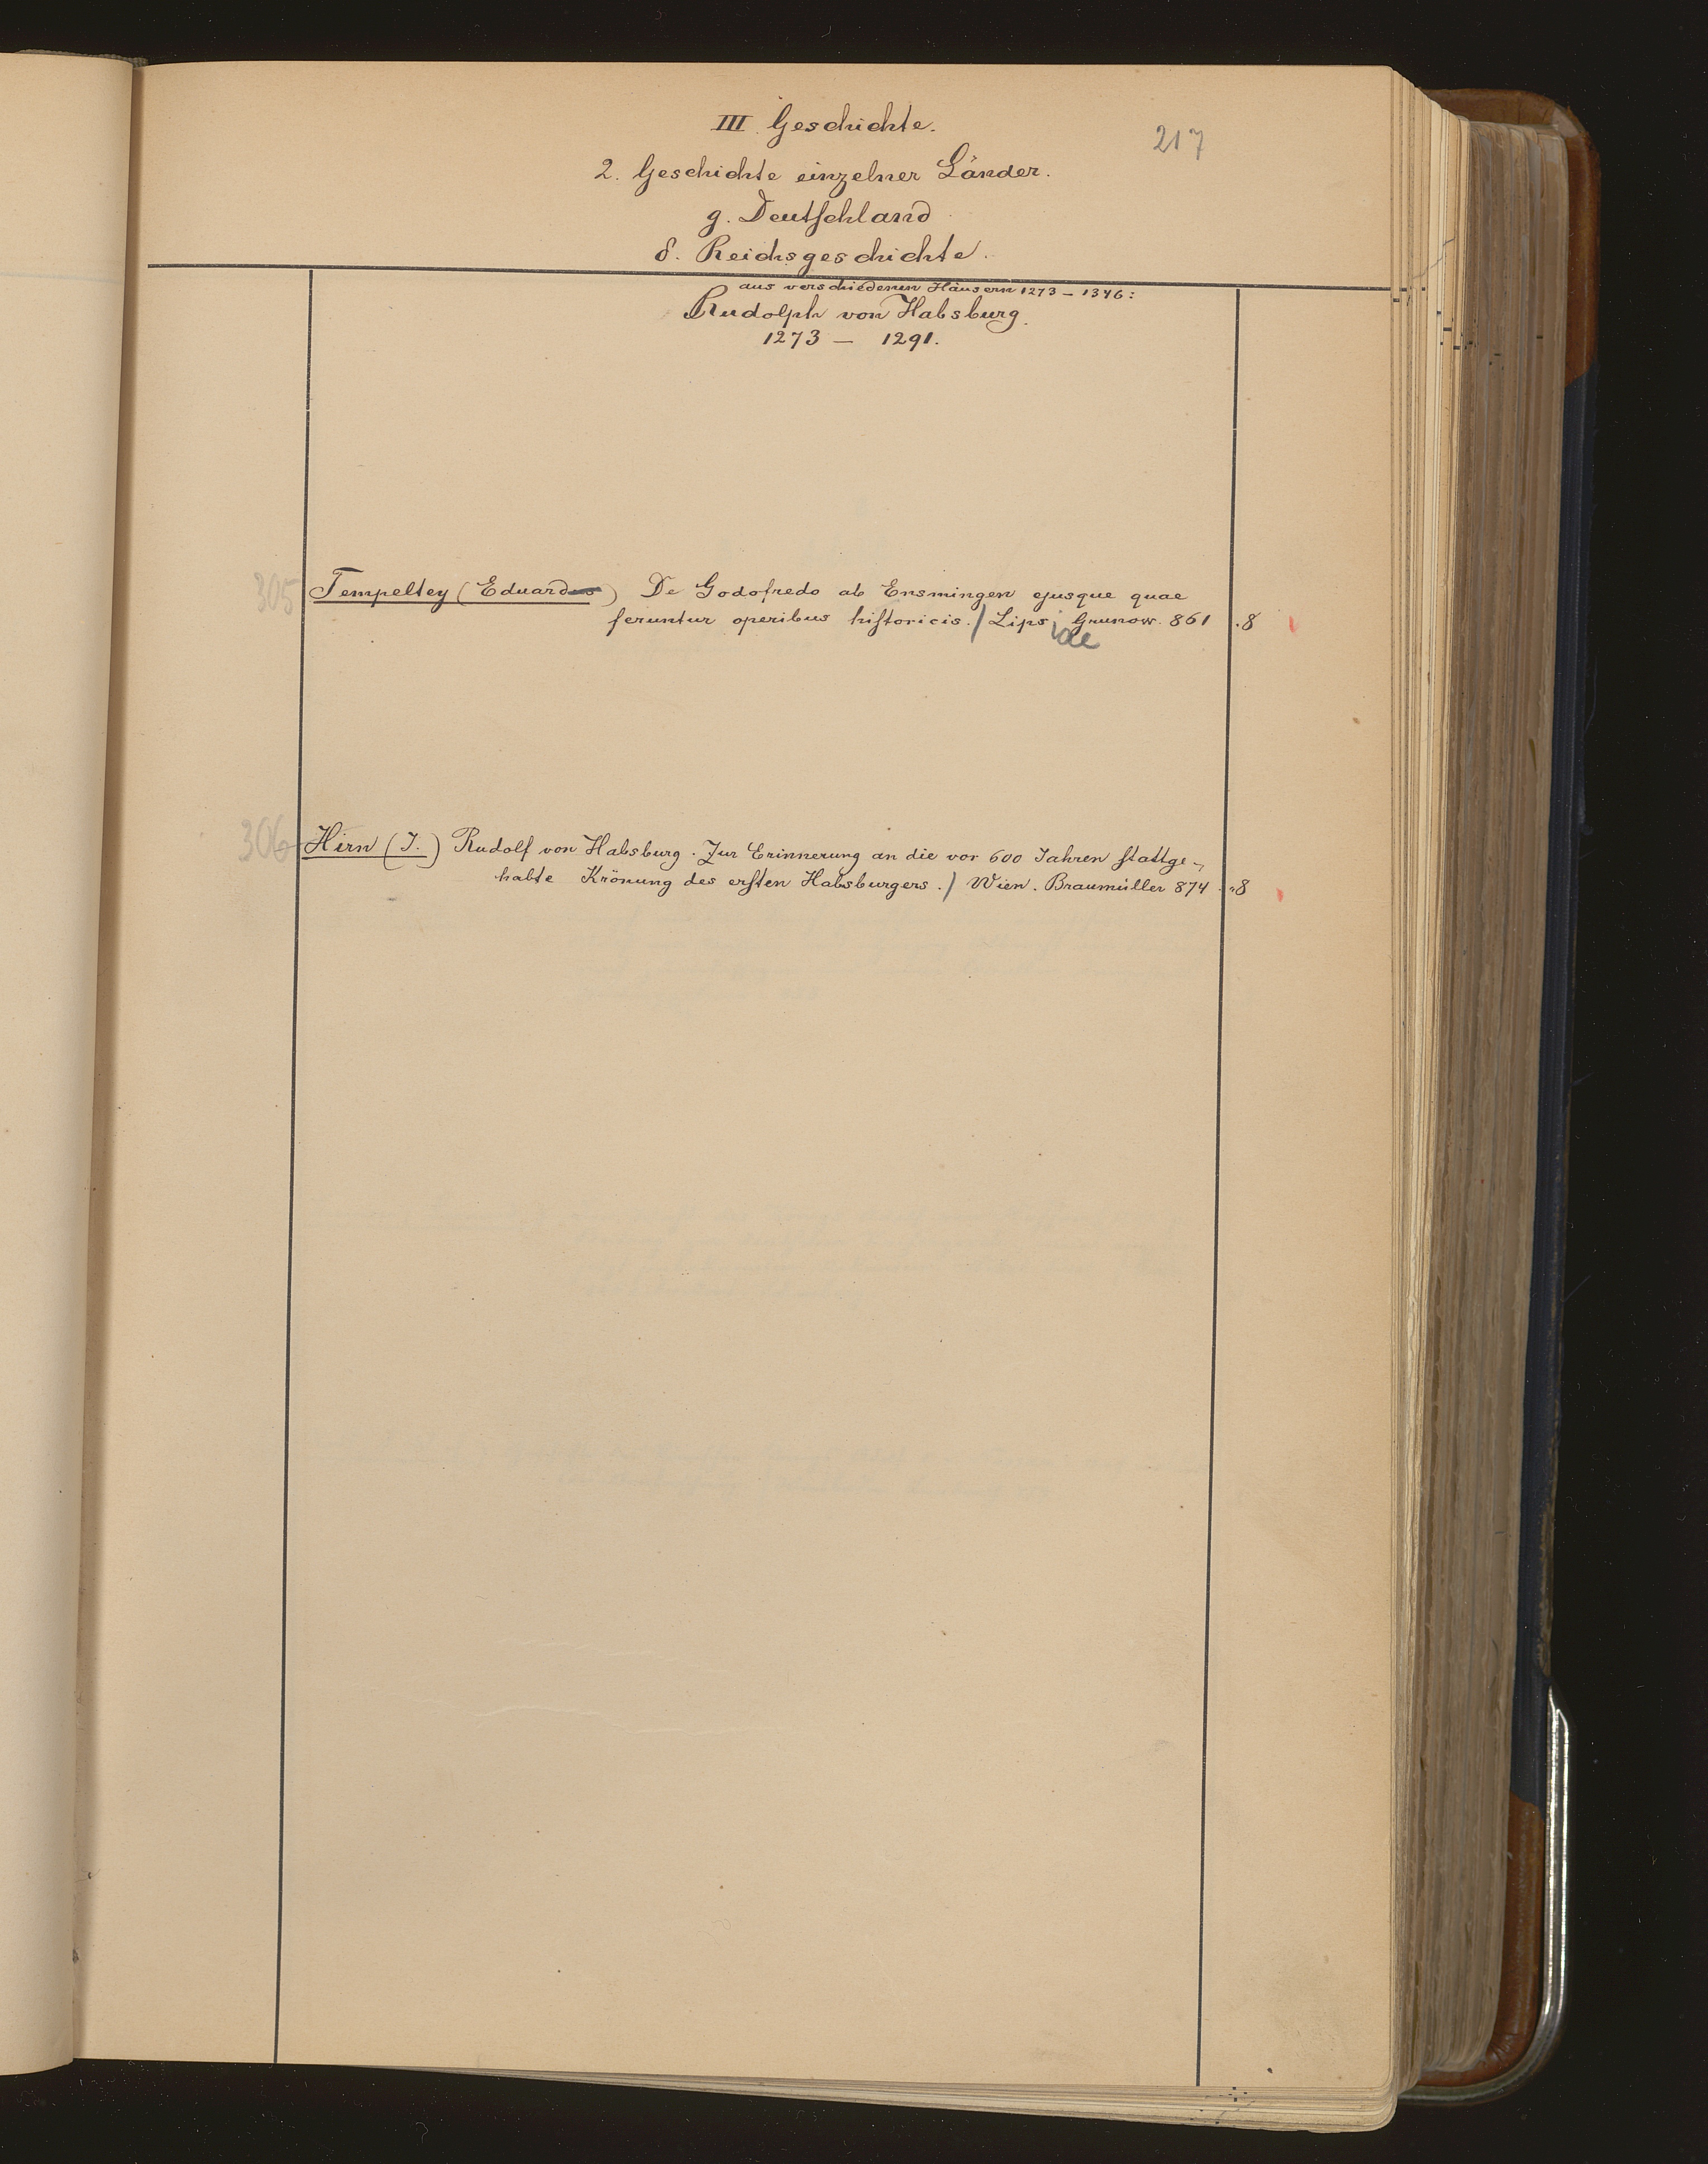 III. Geschichte.
217
2. Geschichte einzelner Länder.
g. Deutschland
δ. Reichsgeschichte.
aus verschiedenen Häusern 1273 – 1346:
Rudolph von Habsburg.
1273 – 1291.
305 Tempeltey (Eduardus) De Godofredo ab Ensmingen ejusque quae
feruntur operibus historicis./ Lipsiae Grunow. 861 .8
306 Hirn (J.) Rudolf von Habsburg. Zur Erinnerung an die vor 600 Jahren stattge-
habte Krönung des ersten Habsburgers./ Wien. Braumüller 874. .8